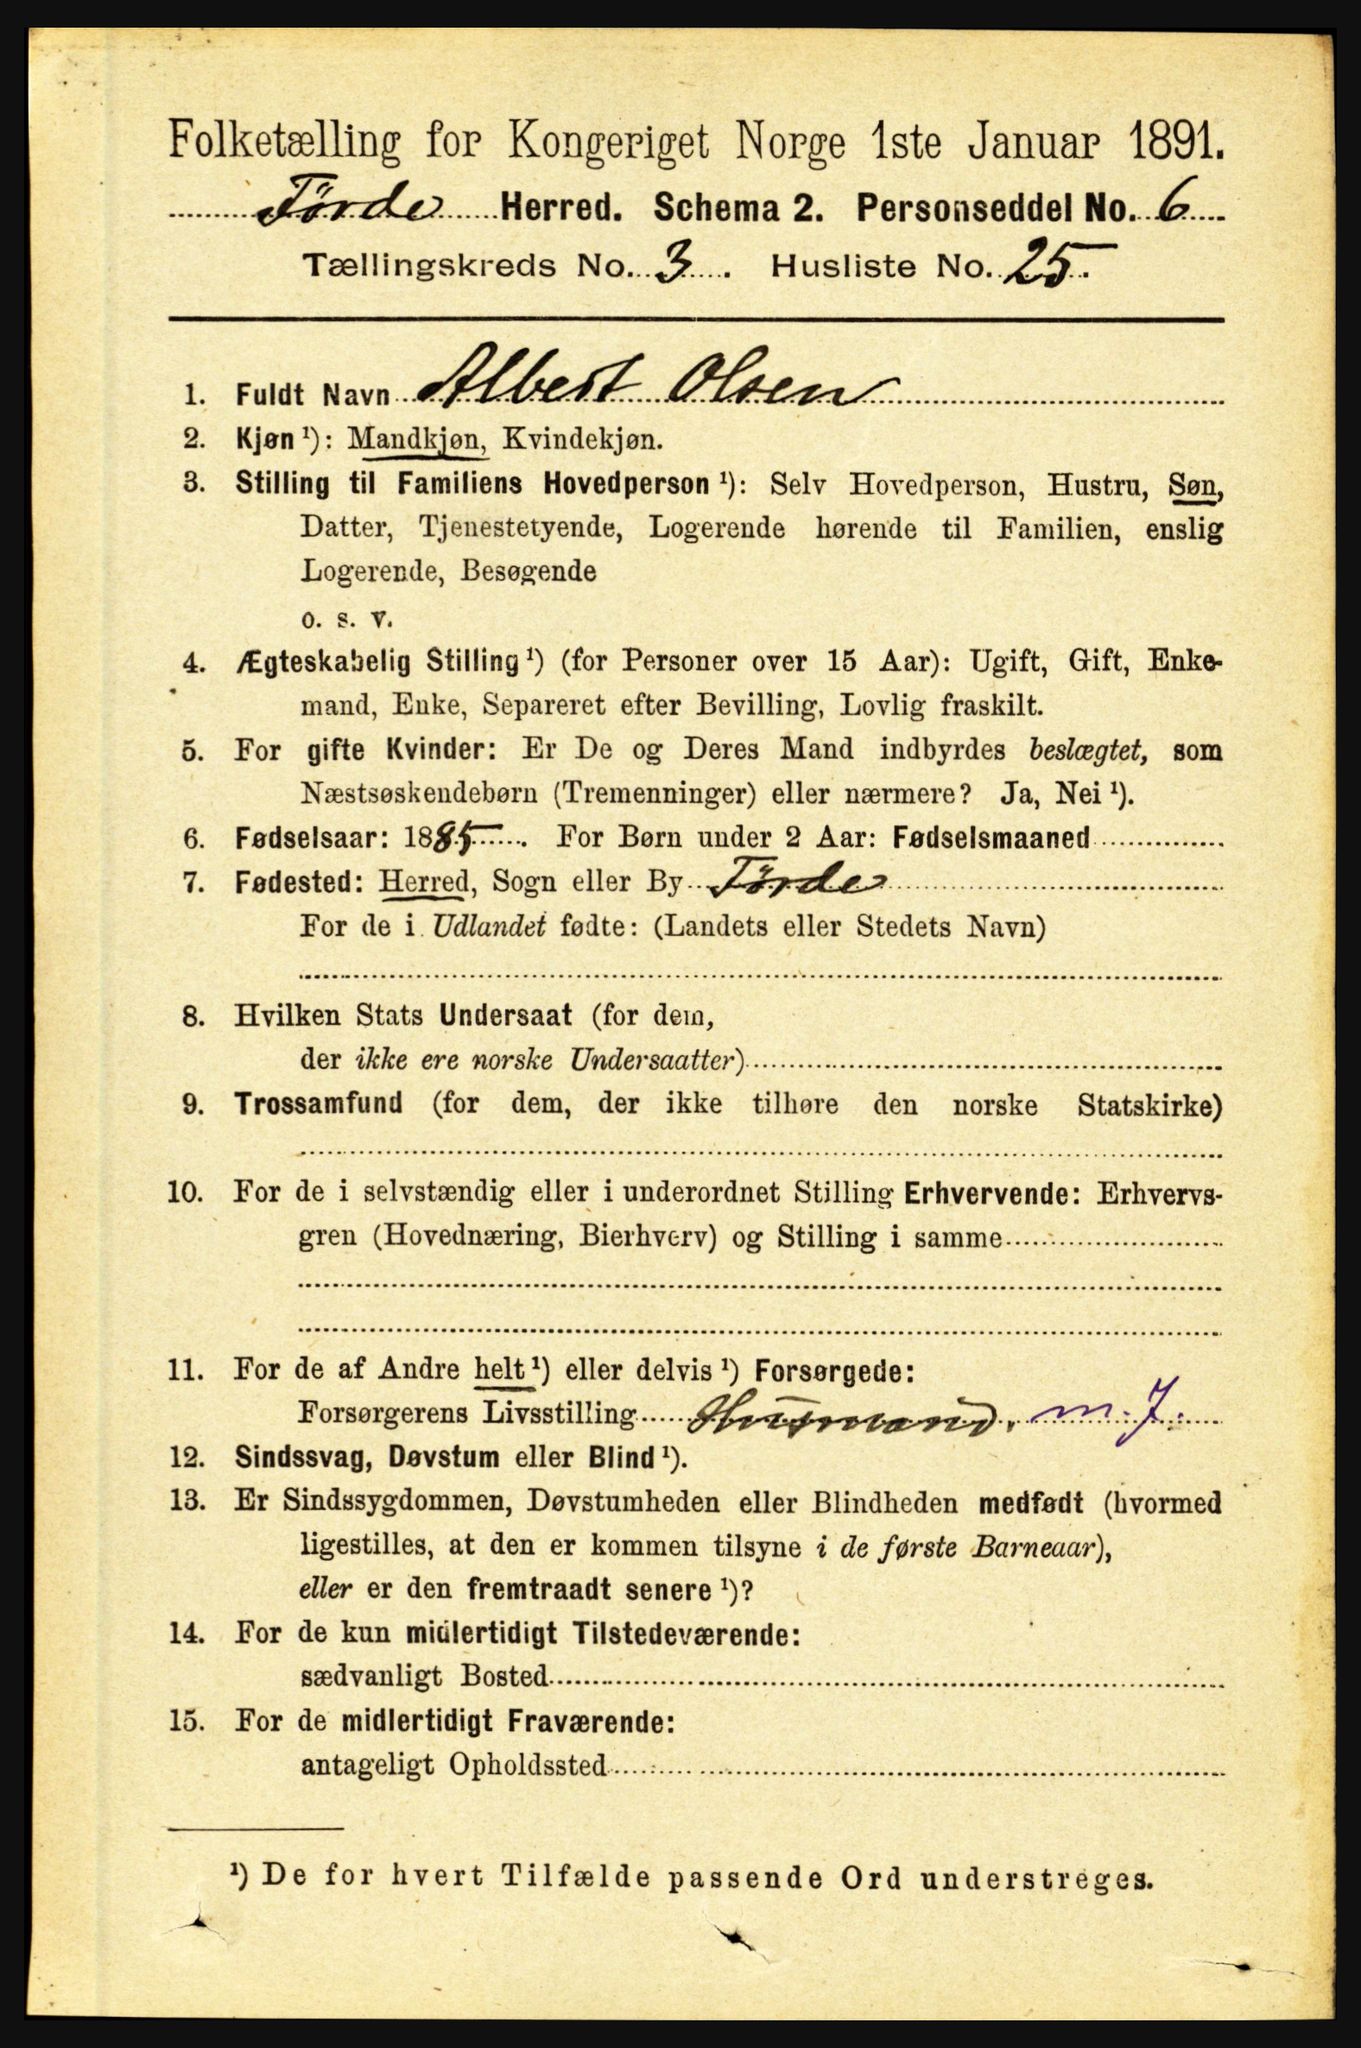 Folketælling for Kongeriget Norge 1ste Januar 1891.
Førde Herred. Schema 2. Personseddel No. 6
Tællingskreds No. 3. Husliste No. 25.
1. Fuldt Navn Albert Olsen
2. Kjøn ¹): Mandkjøn, Kvindekjøn.
3. Stilling til Familiens Hovedperson ¹): Selv Hovedperson, Hustru, Søn,
Datter, Tjenestetyende, Logerende hørende til Familien, enslig
Logerende, Besøgende
o. s. v.
4. Ægteskabelig Stilling ¹) (for Personer over 15 Aar): Ugift, Gift, Enke-
mand, Enke, Separeret efter Bevilling, Lovlig fraskilt.
5. For gifte Kvinder: Er De og Deres Mand indbyrdes beslægtet, som
Næstsøskendebørn (Tremenninger) eller nærmere? Ja, Nei ¹).
6. Fødselsaar: 1885. For Børn under 2 Aar: Fødselsmaaned
7. Fødested: Herred, Sogn eller By Førde
For de i Udlandet fødte: (Landets eller Stedets Navn)
8. Hvilken Stats Undersaat (for dem,
der ikke ere norske Undersaatter)
9. Trossamfund (for dem, der ikke tilhøre den norske Statskirke)
10. For de i selvstændig eller i underordnet Stilling Erhvervende: Erhvervs-
gren (Hovednæring, Bierhverv) og Stilling i samme
11. For de af Andre helt ¹) eller delvis ¹) Forsørgede:
Forsørgerens Livsstilling Husmand. m. J.
12. Sindssvag, Døvstum eller Blind ¹).
13. Er Sindssygdommen, Døvstumheden eller Blindheden medfødt (hvormed
ligestilles, at den er kommen tilsyne i de første Barneaar),
eller er den fremtraadt senere ¹)?
14. For de kun midlertidigt Tilstedeværende:
sædvanligt Bosted
15. For de midlertidigt Fraværende:
antageligt Opholdssted
¹) De for hvert Tilfælde passende Ord understreges.